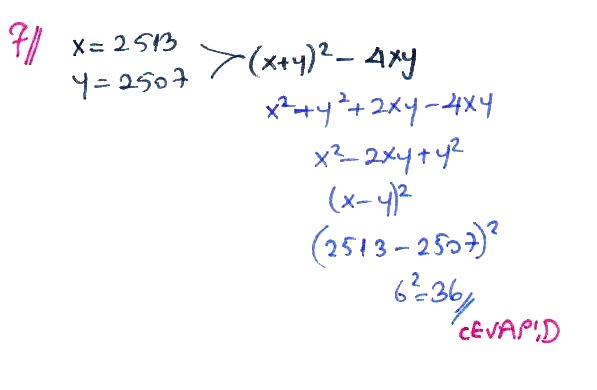 7// x = 2513
y = 2507 > (x+y)² - 4xy
x² + y² + 2xy - 4xy
x² - 2xy + y²
(x - y)²
(2513 - 2507)²
6² = 36//
CEVAP: D